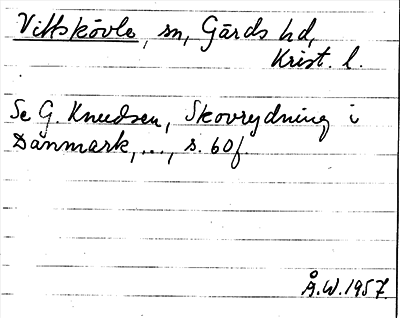 Vittskövle, sn, Gärds hd,
Krist. l.
Se G. Knudsen, Skovrydning i
Danmark, ..., s. 60f.
Å.W. 1957.